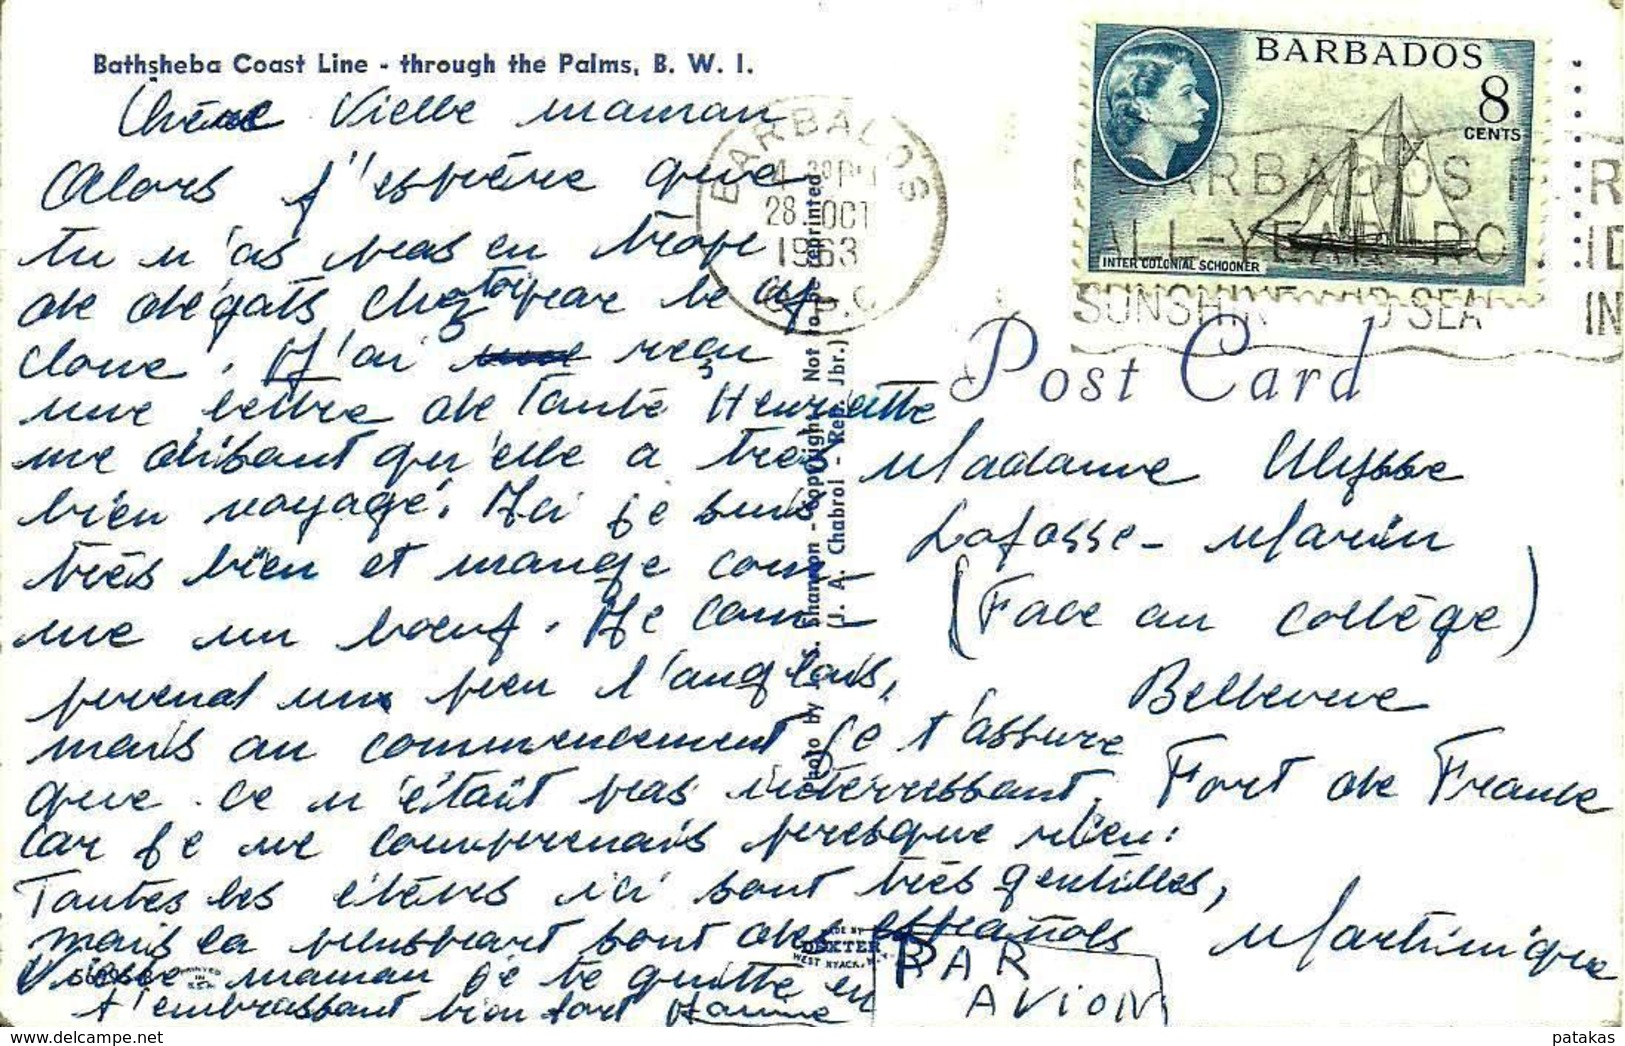 Bathsheba Coast Line - through the Palms, B. W. I.
Chère Vielle maman
Alors j'espère que
tu n'as pas eu trop
de dégats chez toi par le cy
clone. J'ai reçu
une lettre de Tante Henriette
me disant qu'elle a très
bien voyagé. Ici je suis
très bien et mange com
me un boeuf. Je com
prend un peu l'anglais,
mais au commencement je t'assure
que ce n'était pas intérressant,
car je ne comprenais presque rien.
Toutes les élèves ici sont très gentilles,
mais la plusspart sont des español​s
Vielle maman je te quitte en
t'embrassant bien fort
BARBADOS
28 OCT
1963
G.P.O.
BARBADOS
8
CENTS
INTER COLONIAL SCHOONER
BARBADOS
ALL-YEAR-RO
SUNSHIN SEA
Post Card
Madame Ulysse
Lafosse - Marin
(Face au collège)
Bellevue
Fort de France
Martinique
PAR
AVION
Photo by Shannon - Copyright Not to be reprinted
(J. A. Chabrol - Rep. Jbr.)
MADE BY
DEXTER
WEST NYACK, N.Y.
PRINTED
IN
delcampe.net
patakas